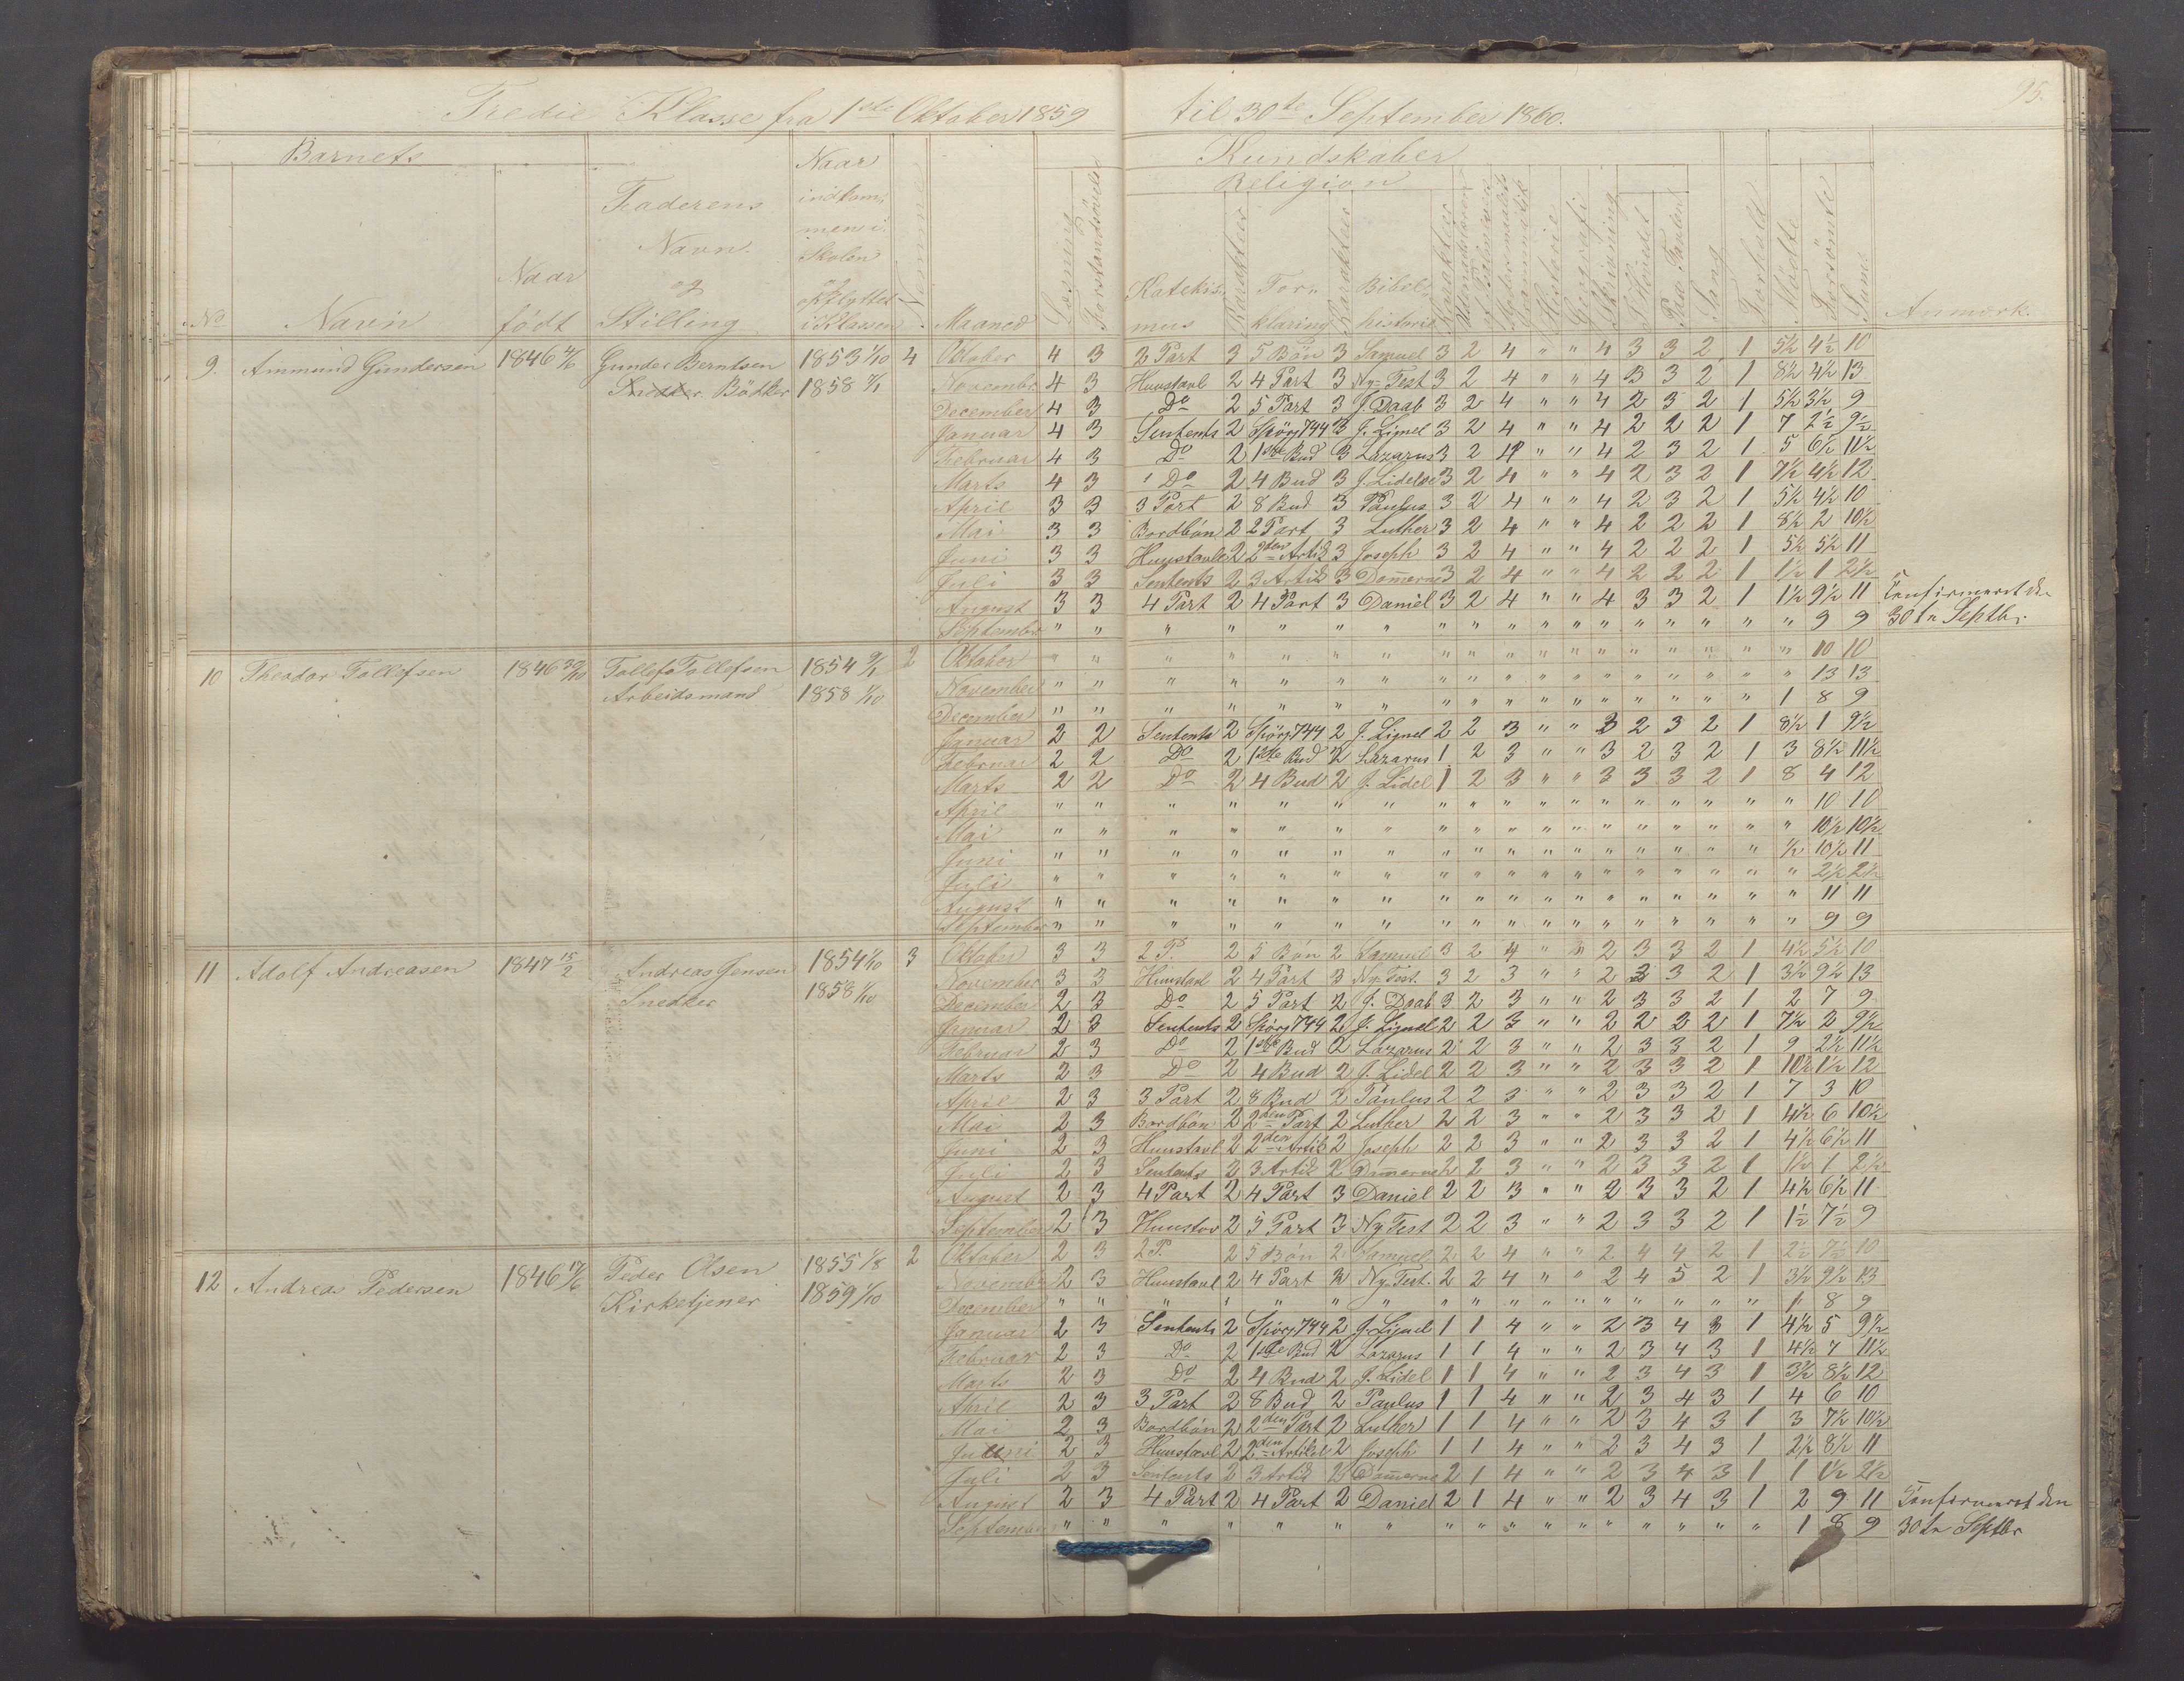 95.
Tredie Klasse fra 1ste Oktober 1859 til 30te September 1860.
Barnets
Kundskaber
Religion
No Navn Naar født Faderens Navn og Stilling Naar indkommen i Skolen og opflyttet i Klassen Maaned Læsning Forstandsøvelse Katekismus Karakter Forklaring Karakter Bibelhistorie Karakter Historie Geografi Skrivning Sang Forhold Mødte Forsømte Sum Anmærk.
9. Ammund Gundersen 1846 Gunder Berntsen 1853 1/10 4 Oktober 4 3 2 Part 3 5 Bön 3 Samuel 3 2 4 " " 4 3 3 2 1 5½ 4½ 10
Snedker. Bödker 1858 November 4 3 Huustavl 2 4 Part 3 Ny-Test 3 2 4 " " 4 3 3 2 1 8½ 4½ 13
December 4 3 Do 2 5 Part 3 J. Daab 3 2 4 " " 4 2 3 2 1 5½ 3½ 9
Januar 4 3 Sentents 2 Spörg 744 3 J. Lignel 3 2 4 " " 4 2 2 2 1 7 2½ 9½
Februar 4 3 Do 2 1ste Bud 3 Lazarus 3 2 4 " " 4 2 3 2 1 5 6½ 11½
Marts 4 3 Do 2 4 Bud 3 J. Lidelse 3 2 4 " " 4 2 3 2 1 7½ 4½ 12
April 3 3 3 Part 2 8 Bud 3 Paulus 3 2 4 " " 4 2 3 2 1 5½ 4½ 10
Mai 3 3 Bordbön 2 2 Part 3 Luther 3 2 4 " " 4 2 2 2 1 8½ 2 10½
Juni 3 3 Huustavle 2 2den Artik 3 Joseph 3 2 4 " " 4 2 2 2 1 5½ 5½ 11
Juli 3 3 Sentents 2 3 Artik 3 Domerne 3 2 4 " " 4 2 2 2 1 1½ 1 2½
August 3 3 4 Part 2 4 Part 3 Daniel 3 2 4 " " 4 3 3 2 1 1½ 9½ 11 Confirmeret den
September " " " " " " " " " " " " " " " " " " 9 9 30te Septbr.
10 Theodor Tollefsen 1846 Tollef Tollefsen 1854 2 Oktober " " " " " " " " " " " " " " " " " " 10 10
Arbeidsmand 1858 1/10 November " " " " " " " " " " " " " " " " " " 13 13
December " " " " " " " " " " " " " " " " " 1 8 9
Januar 2 2 Sentents 2 Spörg 744 2 J. Lignel 2 2 3 " " 3 2 3 2 1 8½ 1 9½
Februar 2 2 Do 2 1ste Bud 2 Lazarus 1 2 3 " " 3 2 3 2 1 3 8½ 11½
Marts 2 2 Do 2 4 Bud 2 J. Lidel 1 2 3 " " 3 3 3 2 1 8 4 12
April " " " " " " " " " " " " " " " " " " 10 10
Mai " " " " " " " " " " " " " " " " " " 10½ 10½
Juni " " " " " " " " " " " " " " " " " ½ 10½ 11
Juli " " " " " " " " " " " " " " " " " " 2½ 2½
August " " " " " " " " " " " " " " " " " " 11 11
September " " " " " " " " " " " " " " " " " " 9 9
11 Adolf Andreasen 1847 15/2 Andreas Jensen 1854 1/10 3 Oktober 3 3 2 P. 2 5 Bön 2 Samuel 3 2 4 " " 2 3 3 2 1 4½ 5½ 10
Snedker 1858 1/10 November 3 3 Huustavl 2 4 Part 3 Ny-Test. 3 2 3 " " 2 3 3 2 1 3½ 9½ 13
December 2 3 Do 2 5 Part 2 J. Daab 3 2 3 " " 2 3 3 2 1 2 7 9
Januar 2 3 Sentents 2 Spörg 744 2 J. Lignel 2 2 3 " " 2 2 2 2 1 7½ 2 9½
Februar 2 3 Do 2 1ste Bud 2 Lazarus 2 2 3 " " 2 3 3 2 1 9 2½ 11½
Marts 2 3 Do 2 4 Bud 2 J. Lidel 2 2 3 " " 2 3 3 2 1 10½ 1½ 12
April 2 3 3 Part 2 8 Bud 2 Paulus 2 2 3 " " 2 3 3 2 1 7 3 10
Mai 2 3 Bordbön 2 2den Part 2 Luther 2 2 3 " " 2 3 3 2 1 4½ 6 10½
Juni 2 3 Huustavl 2 2den Artik 2 Joseph 2 2 3 " " 2 3 3 2 1 4½ 6½ 11
Juli 2 3 Sentents 2 3 Artik 2 Domerne 2 2 3 " " 2 3 3 2 1 1½ 1 2½
August 2 3 4 Part 2 4 Part 3 Daniel 2 2 3 " " 2 3 3 2 1 4½ 6½ 11
September 2 3 Huustav 2 5 Part 3 Ny. Test 2 2 3 " " 2 3 3 2 1 1½ 7½ 9
12 Andreas Pedersen 1846 Peder Olsen 1855 1/8 2 Oktober 2 3 2 P. 2 5 Bön 2 Samuel 2 2 4 " " 2 4 4 2 1 2½ 7½ 10
Kirketjener 1859 1/10 November 2 3 Huustavl 2 4 Part 2 Ny. Test. 2 2 4 " " 2 4 5 2 1 3½ 9½ 13
December " " " " " " " " " " " " " " " " " 1 8 9
Januar 2 3 Sentents 2 Spörg 744 2 J. Lignel 1 1 4 " " 2 3 4 3 1 4½ 5 9½
Februar 2 3 Do 2 1ste Bud 2 Lazarus 1 1 4 " " 2 3 4 3 1 4½ 7 11½
Marts 2 3 Do 2 4 Bud 2 J. Lidel 1 1 4 " " 2 3 4 3 1 3½ 8½ 12
April 2 3 3 Part 2 8 Bud 2 Paulus 1 1 4 " " 2 3 4 3 1 4 6 10
Mai 2 3 Bordbön 2 2den Part 2 Luther 1 1 4 " " 2 3 4 3 1 3 7½ 10½
Juni 2 3 Huustavl 2 2den Artikel 2 Joseph 1 1 4 " " 2 3 4 3 1 2½ 8½ 11
Juli 2 3 Sentents 2 3 Artik 2 Domerne 2 1 4 " " 2 3 4 3 1 1 1½ 2½
August 2 3 4 Part 2 4 Part 2 Daniel 2 1 4 " " 2 3 4 3 1 2 9 11 Confirmeret den
September " " " " " " " " " " " " " " " " " 1 8 9 30te Septbr